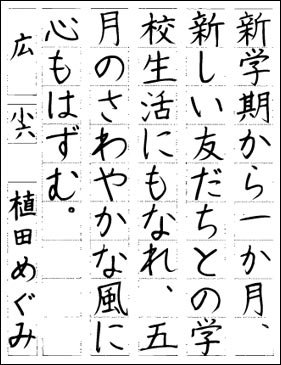 新学期から一か月、
新しい友だちとの学
校生活にもなれ、五
月のさわやかな風に
心もはずむ。
広 小六 植田めぐみ